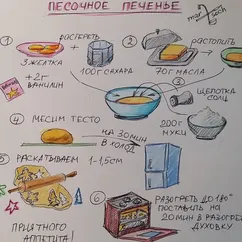 ПЕСОЧНОЕ ПЕЧЕНЬЕ
① РАСТЕРЕТЬ
② РАСТОПИТЬ
3 ЖЕЛТКА
100г САХАРА
70г МАСЛА
+2г
ВАНИЛИН
③
ЩЕПОТКА
СОЛИ
④ МЕСИМ ТЕСТО
НА 30 МИН
В ХОЛОД
200г
МУКИ
⑤ РАСКАТЫВАЕМ
1-1,5см
⑥ РАЗОГРЕТЬ ДО 180°
ПОСТАВИТЬ НА
20 МИН В РАЗОГРЕ
ДУХОВКУ
ПРИЯТНОГО
АППЕТИТА!